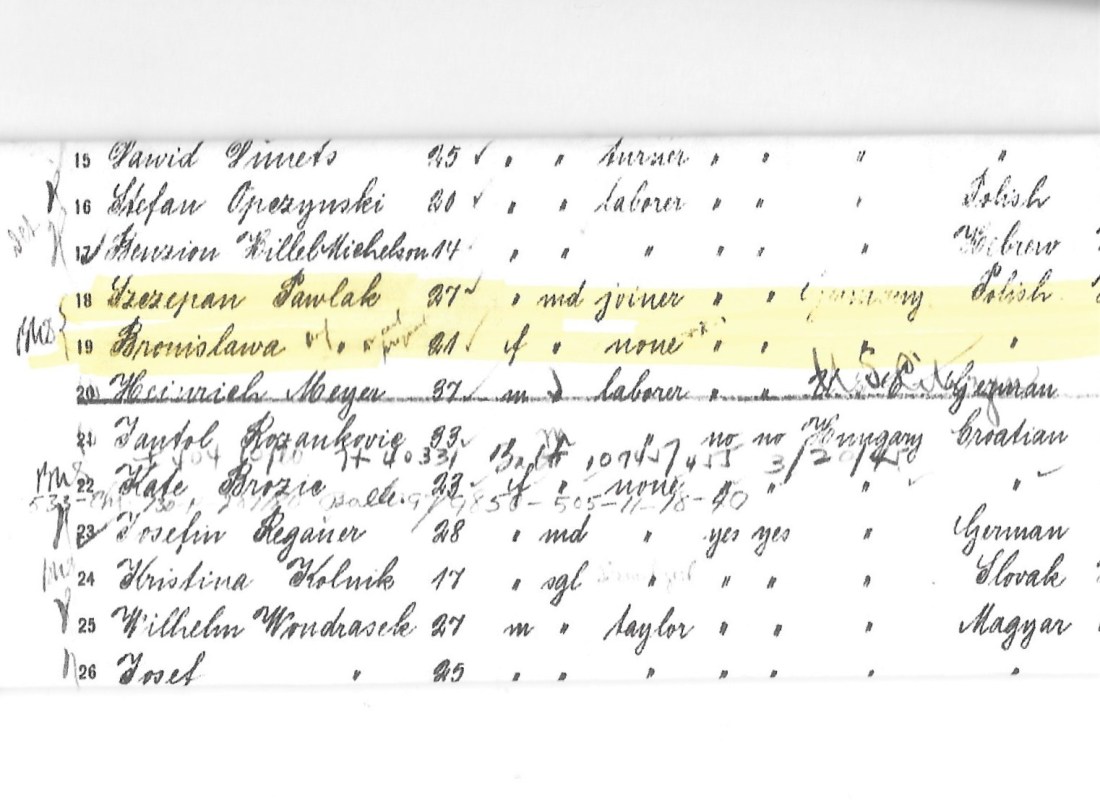 15 Dawid Dimets 25 ✓ " " turner " " " "
16 Stefan Opczynski 20 ✓ " " laborer " " " Polish
Det 17 Benzion Hillel Michelson 14 " " " " " " Hebrew
18 Szczepan Pawlak 27 ✓ " md joiner " " Germany Polish
19 Bronislawa " " 21 ✓ f " none " " " "
20 Heinrich Meyer 37 m laborer " " U.S. German
21 Rozankovic 33 " no no Hungary Croatian
3/20/45
22 Kate Brozic 23 f " none " " " "
505-11-18-40
23 Josefin Regauer 28 " md " yes yes " German
24 Kristina Kolnik 17 " sgl " " " " Slovak
25 Wilhelm Wondrasek 27 m " taylor " " " Magyar
26 Josef " 25 " " " " " " "